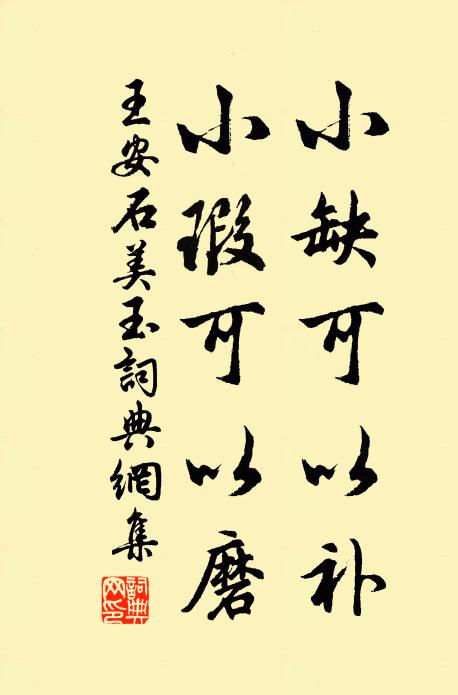 小缺可以补
小瑕可以磨
王安石美玉詞典網集
詞典网印